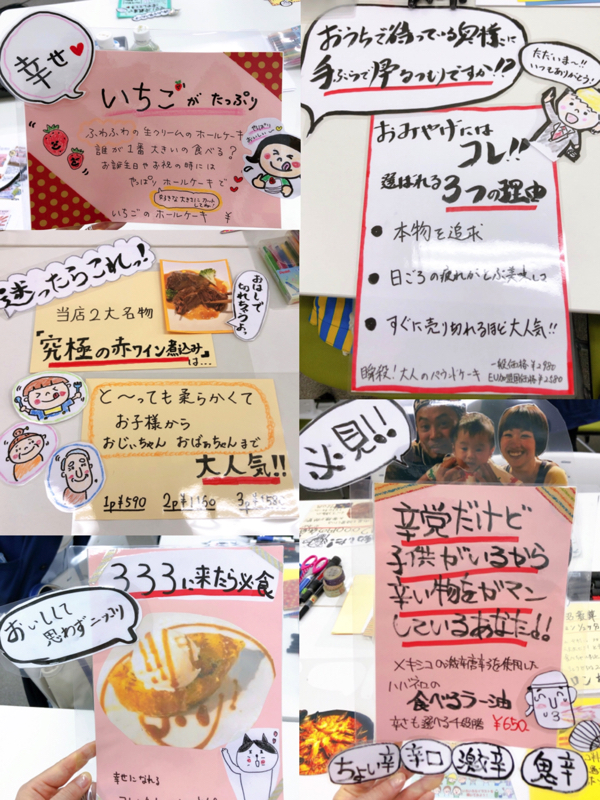 幸せ
いちごがたっぷり
ふわふわの生クリームのホールケーキ
誰が1番大きいの食べる?
お誕生日やお祝の時には
やっぱりホールケーキで
好きな大きさにカットしてね!
いちごのホールケーキ ¥
おうちで待っている奥様に
手ぶらで帰るつもりですか!?
ただいまー!!
いつもありがとう!
おみやげには
コレ!!
選ばれる3つの理由
● 本物を追求
● 日ごろの疲れがとぶ美味しさ
● すぐに売り切れるほど大人気!!
一般価格 ¥2980
瞬殺!大人のパウンドケーキ
迷ったらこれっ!
当店2大名物
「究極の赤ワイン煮込み」
は…
おはしで
切れちゃうよ
と〜っても柔らかくて
お子様から
おじぃちゃん おばぁちゃんまで
大人気!!
1p¥590 2p¥1160
333に来たら必食
おいしくて
思わずニッコリ
幸せになれる
必見!!
辛党だけど
子供がいるから
辛い物をガマン
しているあなた!!
ハバネロの
食べるラー油
¥650
ちょい辛 辛口 激辛 鬼辛